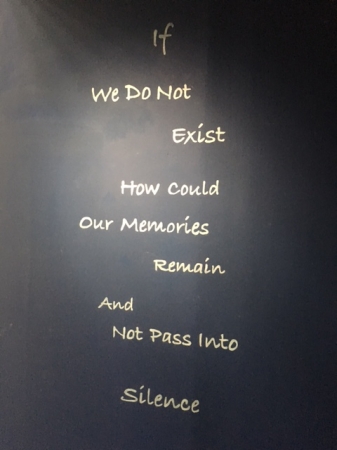 If
We Do Not
Exist
How Could
Our Memories
Remain
And
Not Pass Into
Silence